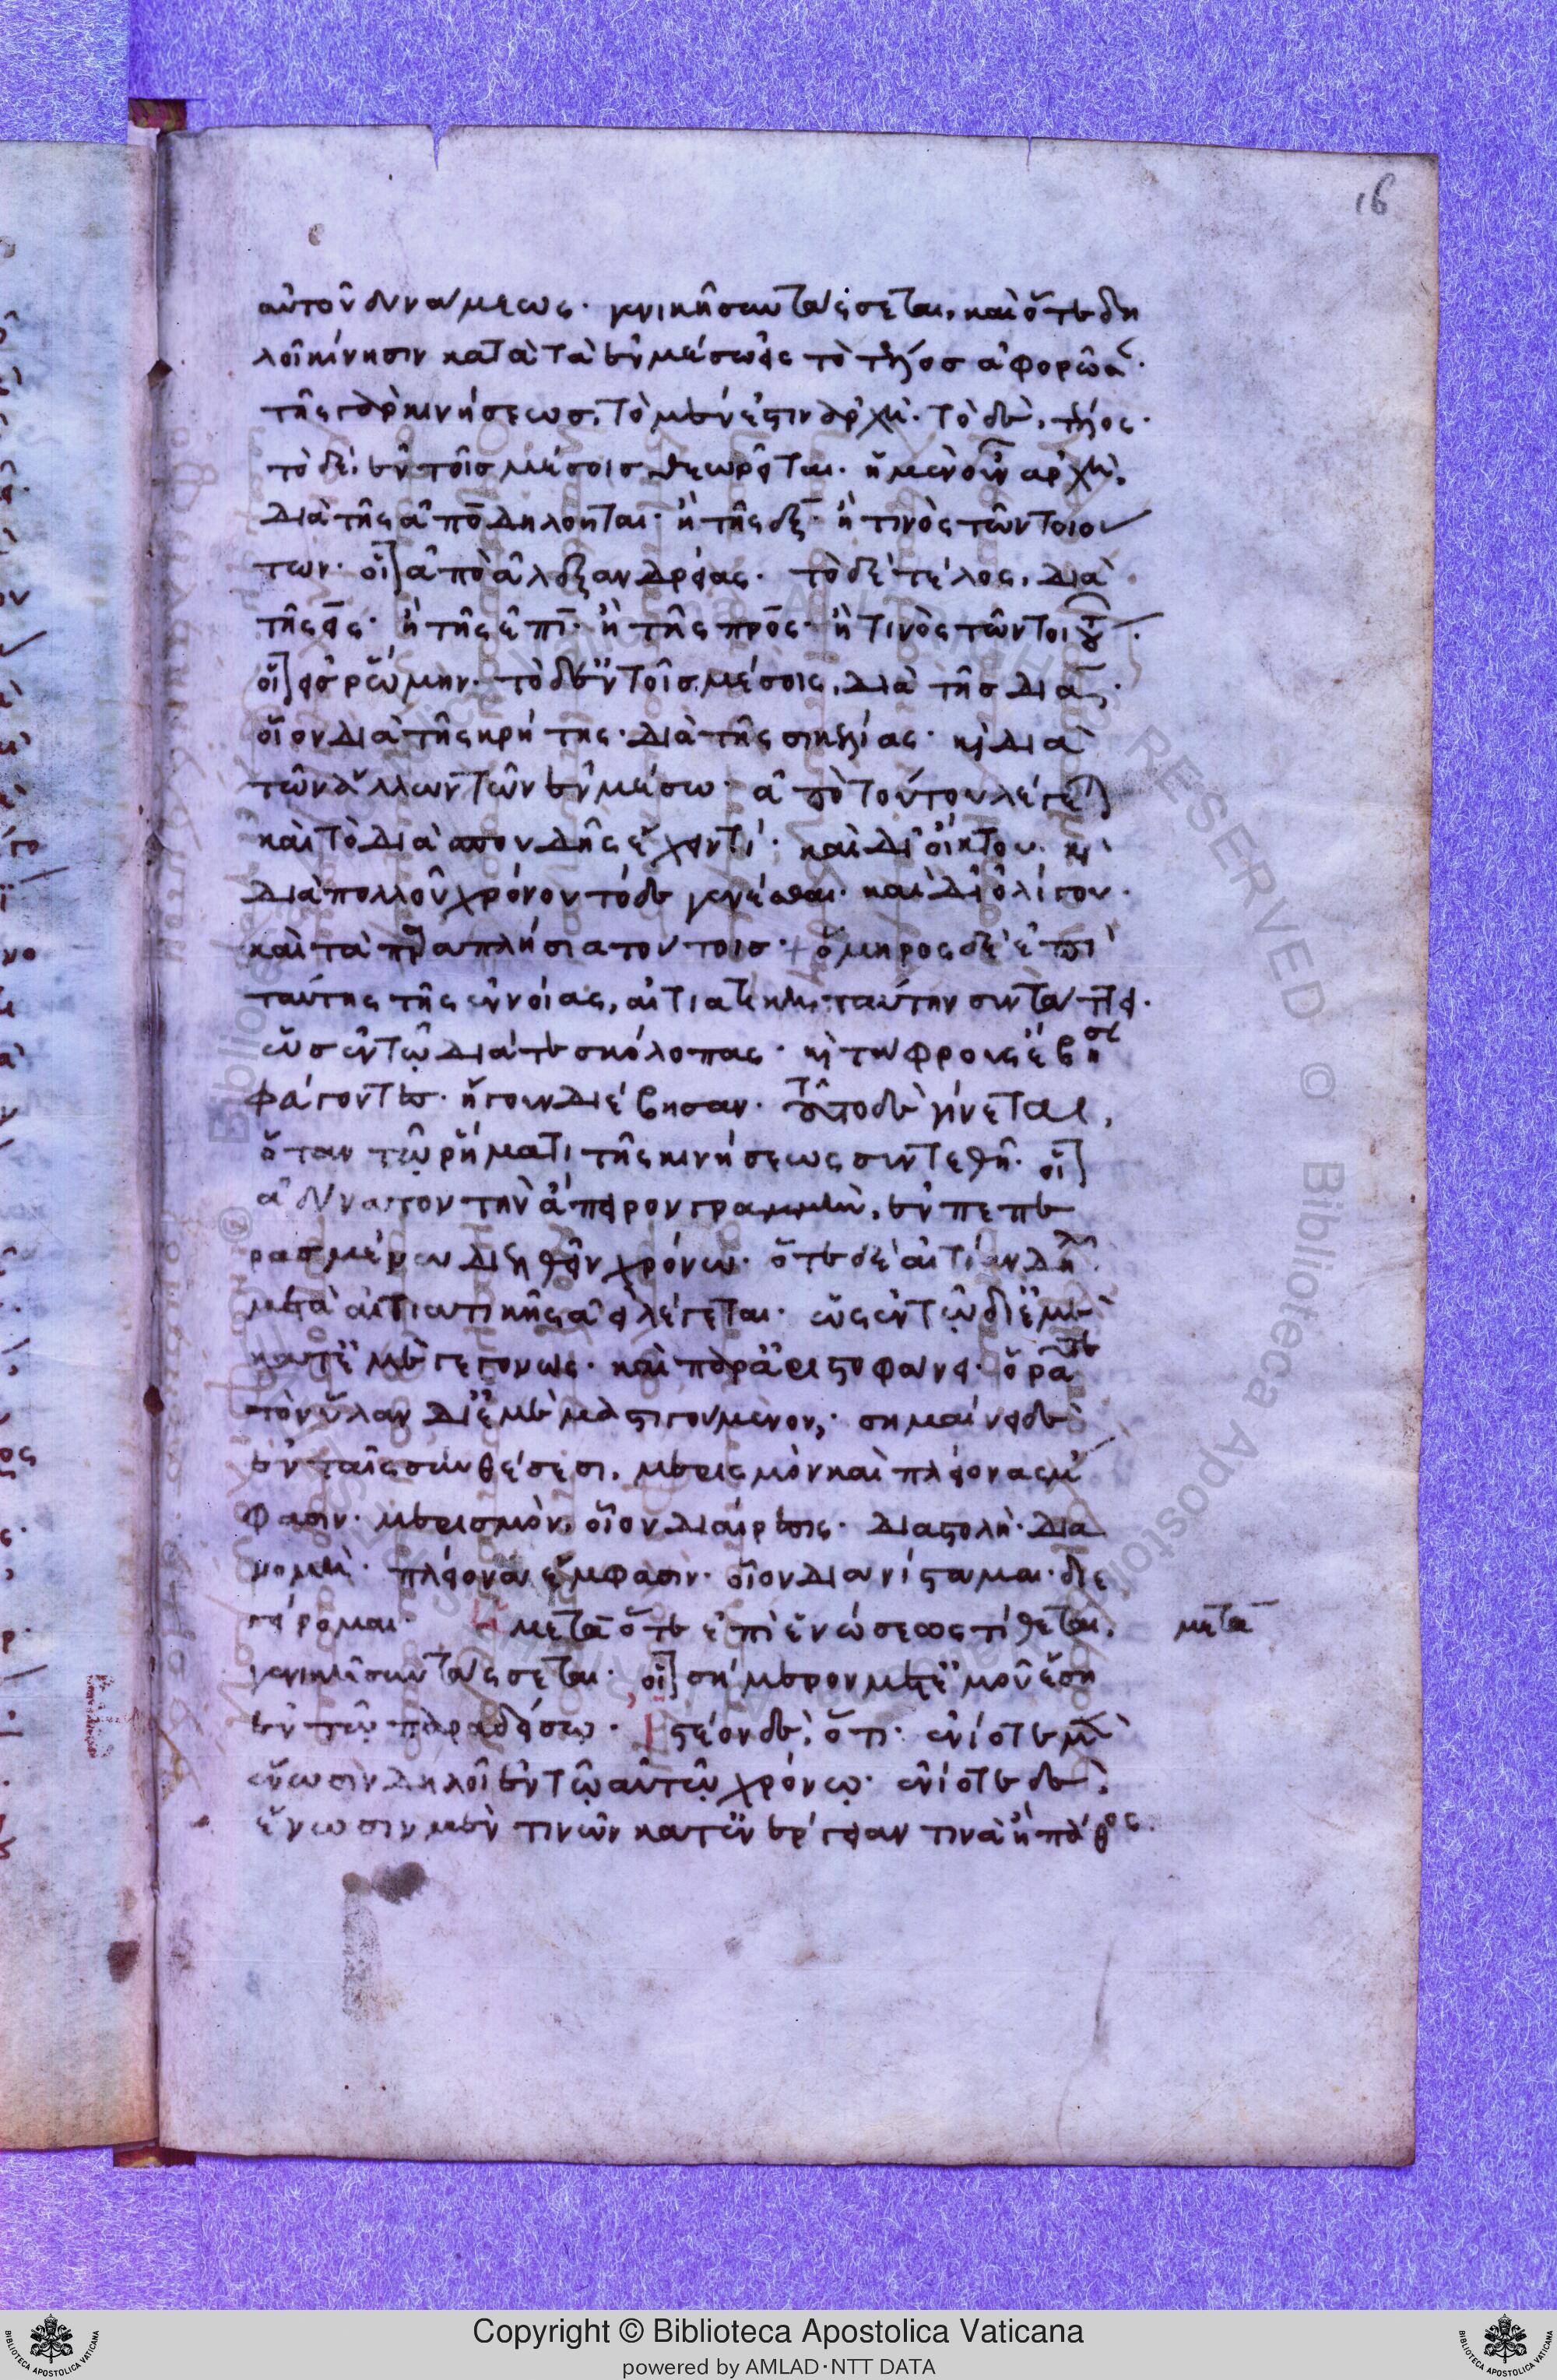 16
αὐτοῦ δυνάμεως· γενικῆ συντάσσεται, καὶ ὅτε δη
λοῖ κίνησιν κατὰ τὰ ἐν μέσω εἰς τὸ τέλος ἀφορῶσαν·
τῆς γὰρ κινήσεως, τὸ μέν ἐστιν ἀρχή· τὸ δὲ, τέλος·
τὸ δὲ, ἐν τοῖς μέσοις θεωρεῖται· ἡ μὲν οὖν ἀρχὴ,
διὰ τῆς ἀπὸ δηλοῦται· ἢ τῆς ἐξ· ἢ τινὸς τῶν τοιού
των· οἷον ἀπὸ ἀλεξανδρείας· τὸ δὲ τέλος, διὰ
τῆς εἰς· ἢ τῆς ἐπὶ· ἢ τῆς πρὸς· ἢ τινὸς τῶν τοιούτων·
οἷον εἰς ῥώμην· τὸ δ' ἐν τοῖς μέσοις, διὰ τῆς διά·
οἷον διὰ τῆς κρήτης· διὰ τῆς σικελίας· καὶ διὰ
τῶν ἄλλων τῶν ἐν μέσω· ἀπὸ τούτου λέγεται
καὶ τὸ διὰ σπουδῆς ἔχειν τί· καὶ δι' οἴκτου· καὶ
διὰ πολλοῦ χρόνου τόδε γενέσθαι· καὶ δι' ὀλίγου·
καὶ τὰ παραπλήσια τούτοις· + ὅμηρος δὲ ἐπὶ
ταύτης τῆς ἐννοίας, αἰτιατικὴν ταύτην συντάττει·
ὡς ἐν τῷ διά τε σκόλοπας· καὶ τάφρον ἔβησαν
φεύγοντες· ἤγουν διέβησαν· τοῦτο δὲ γίνεται,
ὅταν τῷ ῥήματι τῆς κινήσεως συντεθῆ· οἷον
ἀδύνατον τὴν ἄπειρον γραμμὴν, ἐν πεπε
ρασμένω διελθεῖν χρόνω· ὅτε δὲ αἰτίαν δηλοῖ
μετὰ αἰτιατικῆς ἀεὶ λέγεται· ὡς ἐν τῷ δι' ἐμὲ
κατ' ἐμὲ γεγονώς· καὶ παρ' ἀριστοφάνει· ὁρᾶτε
τὸν ὕλαν δι' ἐμὲ μαστιγούμενον· σημαίνει δὲ
ἐν ταῖς συνθέσεσι, μερισμὸν καὶ πλείονα ἔμ
φασιν· μερισμὸν, οἷον διαίρεσις· διαστολὴ· δια
νομή· πλείονα ἔμφασιν· οἷον διανίσταμαι· διε
γείρομαι· ἡ μετὰ ὅτε ἐπὶ ἑνώσεως τίθεται, μετὰ
γενικῆ συντάσσεται· οἷον σήμερον μετ' ἐμοῦ ἔση
ἐν τῷ παραδείσω· ἰστέον δὲ, ὅτι ἐνίοτε μὲν
ἕνωσιν δηλοῖ ἐν τῷ αὐτῷ χρόνῳ· ἐνίοτε δὲ,
ἕνωσιν μὲν τινῶν κατ' ἐνέργειαν τινὰ ἢ πάθος·
Copyright © Biblioteca Apostolica Vaticana
powered by AMLAD·NTT DATA